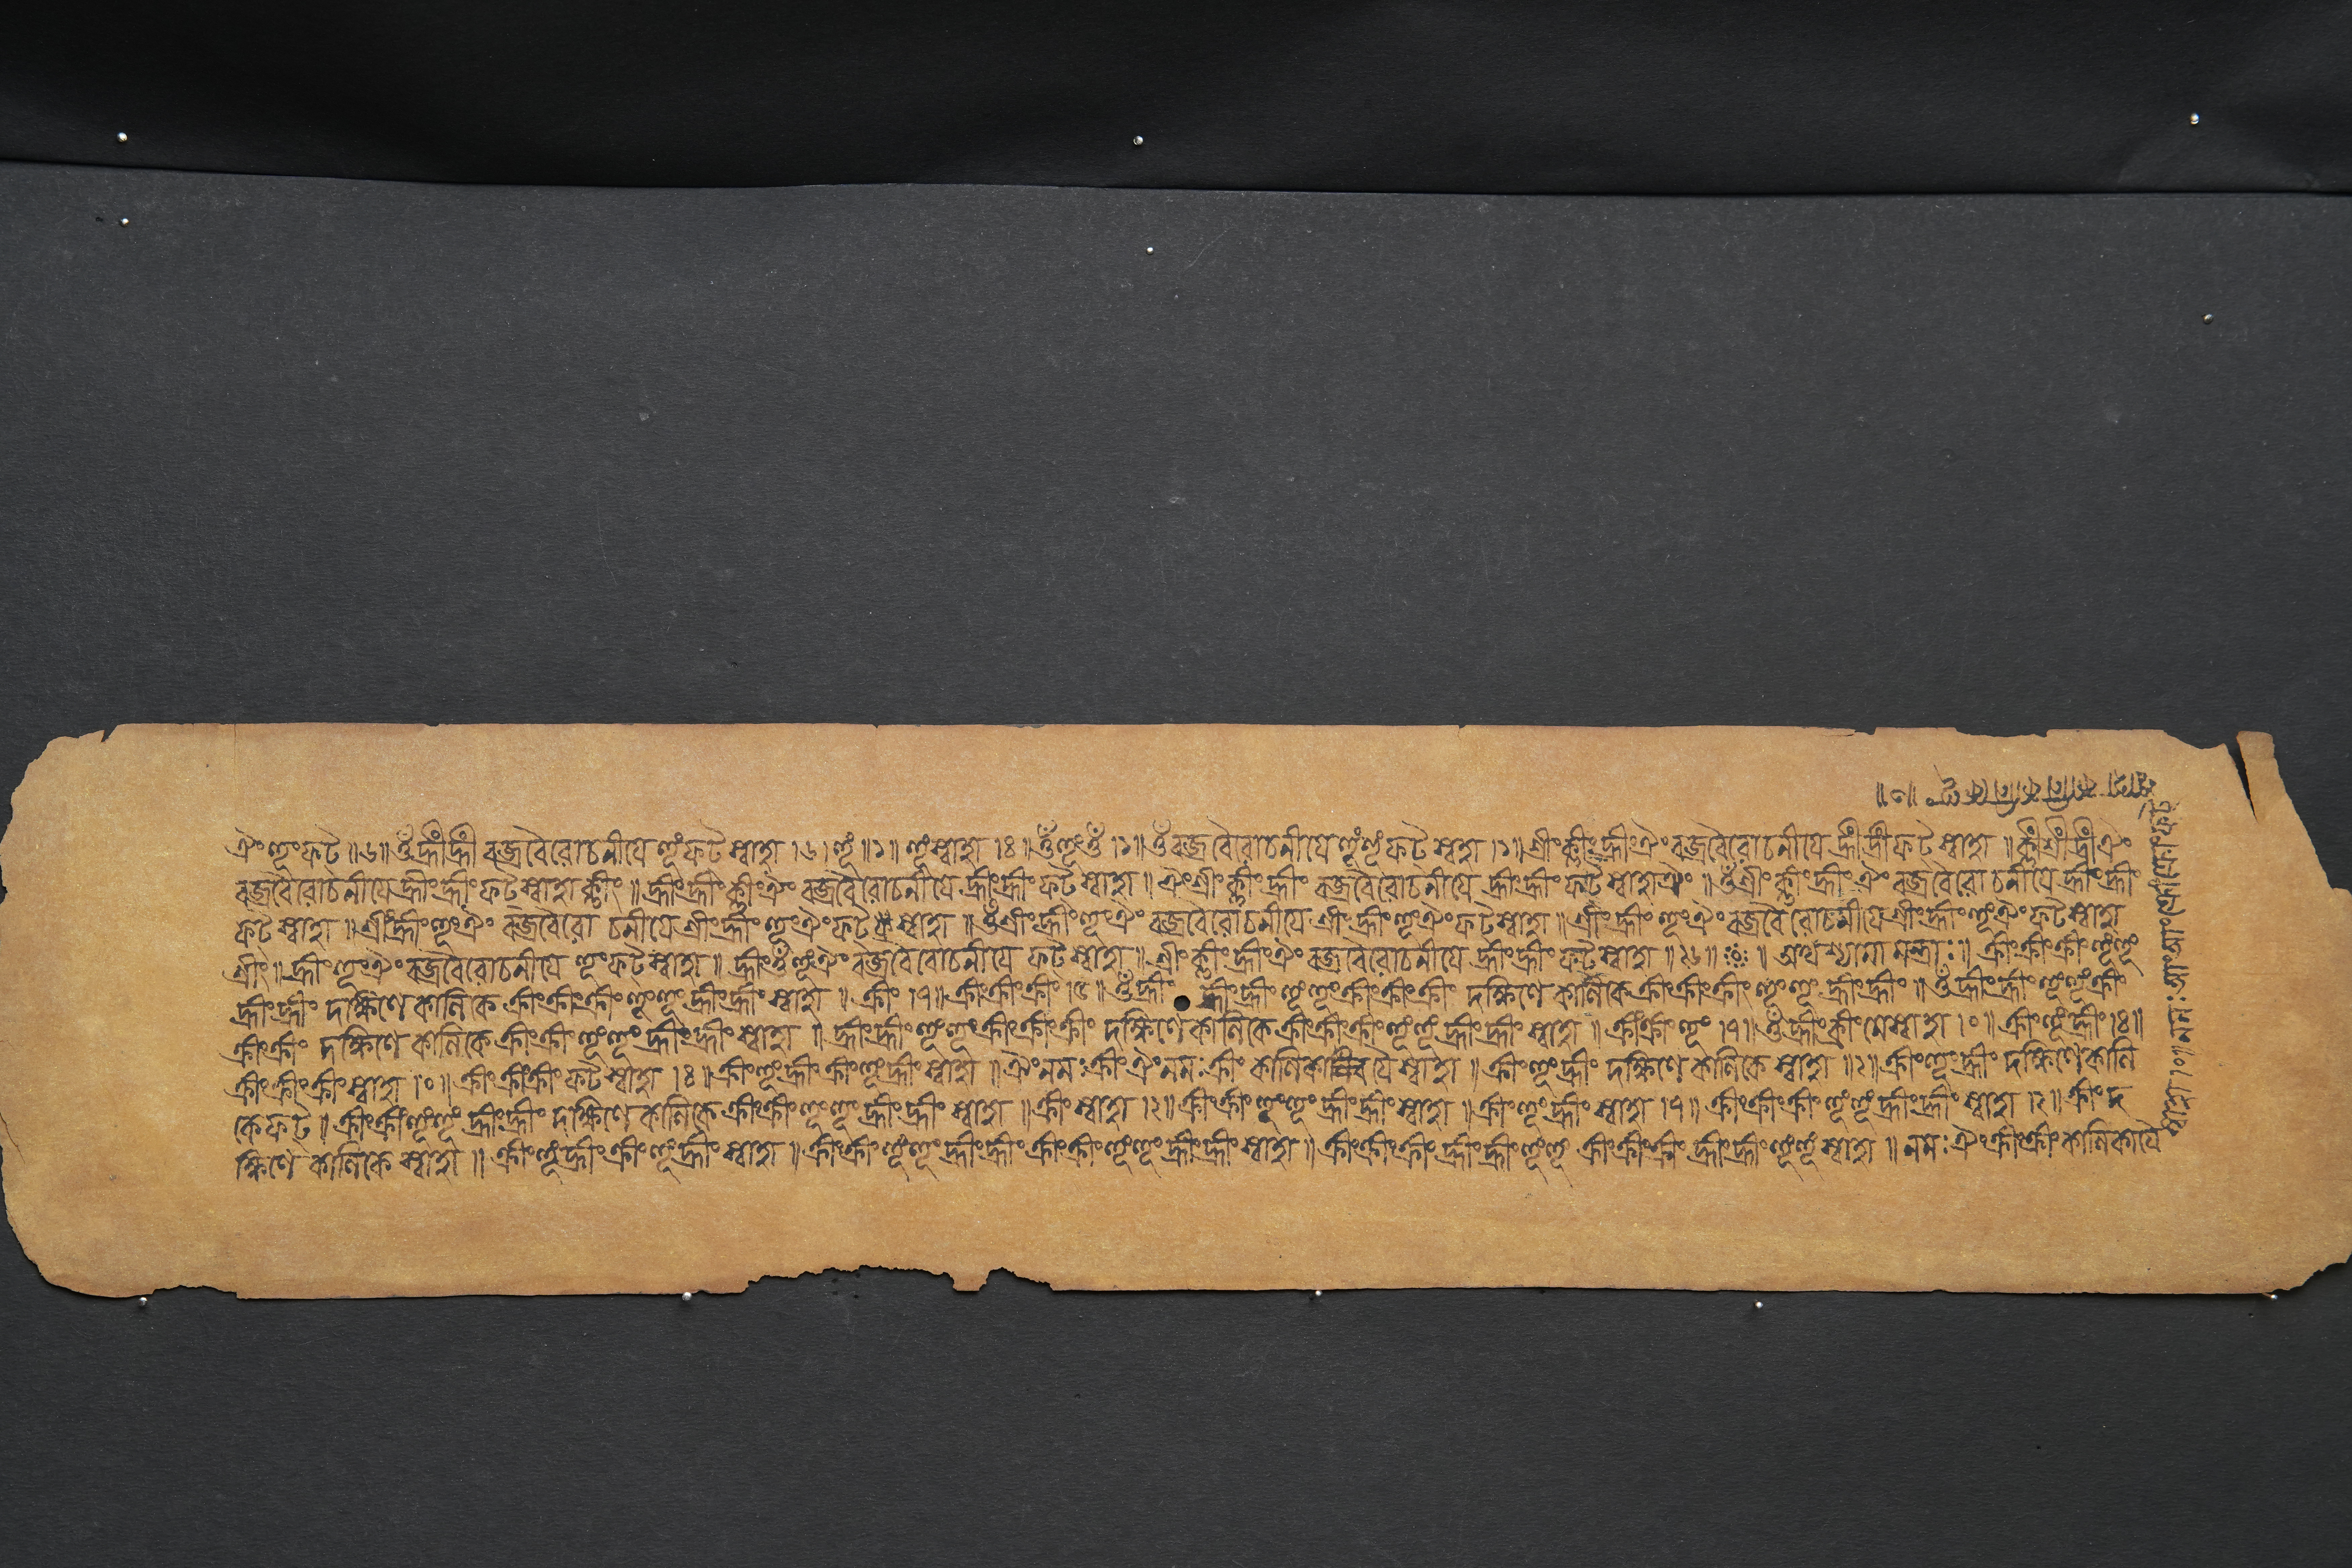 ঐং হূং ফট ॥ ৬॥ ওঁ হ্রীং হ্রীং বজ্রবৈরোচনীযে হূং ফট স্বাহা ।৬। হূং ॥১॥ হূং স্বাহা ।৪॥ ওঁ হূং ওঁ ।১॥ ওঁ বজ্রবৈরোচনীযে হূং হূং ফট স্বাহা ।১॥ শ্রীং ক্লীং হ্রীং ঐং বজ্রবৈরোচনীযে হ্রীং হ্রীং ফট স্বাহা ॥ ক্লীং শ্রীং হ্রীং ঐং
বজ্রবৈরোচনীযে হ্রীং হ্রীং ফট স্বাহা ক্লীং ॥ হ্রীং হ্রীং ক্লীং ঐং বজ্রবৈরোচনীযে হ্রীং হ্রীং ফট স্বাহা ॥ ঐং শ্রীং ক্লীং হ্রীং বজ্রবৈরোচনীযে হ্রীং হ্রীং ফট স্বাহা ঐং ॥ ওঁ শ্রীং ক্লীং হ্রীং ঐং বজ্রবৈরোচনীযে হ্রীং হ্রীং
ফট স্বাহা ॥ শ্রীং হ্রীং হূং ঐং বজ্রবৈরোচনীযে শ্রীং হ্রীং হূং ঐং ফট স্বাহা ॥ ওঁ শ্রীং হ্রীং হূং ঐং বজ্রবৈরোচনীযে শ্রীং হ্রীং হূং ঐং ফট স্বাহা ॥ শ্রীং হ্রীং হূং ঐং বজ্রবৈরোচনীযে শ্রীং হ্রীং হূং ঐং ফট স্বাহা
শ্রীং ॥ হ্রীং হূং ঐং বজ্রবৈরোচনীযে হূং ফট স্বাহা ॥ হ্রীং ওঁ হূং ঐং বজ্রবৈরোচনীযে ফট স্বাহা ॥ শ্রীং ক্লীং হ্রীং ঐং বজ্রবৈরোচনীযে হ্রীং হ্রীং ফট স্বাহা ॥ ২৬॥ ॥ অথ শ্যামা মন্ত্রাঃ ॥ ক্রীং ক্রীং ক্রীং হূং হূং
হ্রীং হ্রীং দক্ষিণে কালিকে ক্রীং ক্রীং ক্রীং হূং হূং হ্রীং হ্রীং স্বাহা ॥ ক্রীং ।৭॥ ক্রীং ক্রীং ক্রীং ॥ ওঁ হ্রীং হ্রীং হ্রীং হূং হূং ক্রীং ক্রীং ক্রীং দক্ষিণে কালিকে ক্রীং ক্রীং ক্রীং হূং হূং হ্রীং হ্রীং ॥ ওঁ হ্রীং হ্রীং হূং হূং ক্রীং
ক্রীং ক্রীং দক্ষিণে কালিকে ক্রীং ক্রীং হূং হূং হ্রীং হ্রীং স্বাহা ॥ হ্রীং হ্রীং হূং হূং ক্রীং ক্রীং ক্রীং দক্ষিণে কালিকে ক্রীং ক্রীং ক্রীং হূং হূং হ্রীং হ্রীং স্বাহা ॥ ক্রীং ক্রীং হূং ।৭॥ ওঁ হ্রীং ক্রীং মে স্বাহা ।০॥ ক্রীং হূং হ্রীং ।৪॥
ক্রীং ক্রীং ক্রীং স্বাহা ।০॥ ক্রীং ক্রীং ক্রীং ফট স্বাহা ।৪॥ ক্রীং হূং হ্রীং ক্রীং হূং হ্রীং স্বাহা ॥ ঐং নমঃ ক্রীং ঐং নমঃ ক্রীং কালিকা যৈ স্বাহা ॥ ক্রীং হূং হ্রীং দক্ষিণে কালিকে স্বাহা ॥২॥ ক্রীং হূং হ্রীং দক্ষিণে কালি
কে ফট ॥ ক্রীং ক্রীং হূং হূং হ্রীং হ্রীং দক্ষিণে কালিকে ক্রীং ক্রীং হূং হূং হ্রীং হ্রীং স্বাহা ॥ ক্রীং স্বাহা ।২॥ ক্রীং ক্রীং হূং হূং হ্রীং হ্রীং স্বাহা ॥ ক্রীং হূং হ্রীং স্বাহা ।৭॥ ক্রীং ক্রীং ক্রীং হূং হূং হ্রীং হ্রীং স্বাহা ।২॥ ক্রীং দ
ক্ষিণে কালিকে স্বাহা ॥ ক্রীং হূং হ্রীং ক্রীং হূং হ্রীং স্বাহা ॥ ক্রীং ক্রীং হূং হূং হ্রীং হ্রীং ক্রীং ক্রীং হূং হূং হ্রীং হ্রীং স্বাহা ॥ ক্রীং ক্রীং ক্রীং হ্রীং হ্রীং হূং হূং ক্রীং ক্রীং ক্রীং হ্রীং হ্রীং হূং হূং স্বাহা ॥ নমঃ ঐং ক্রীং ক্রীং কালিকাযৈ